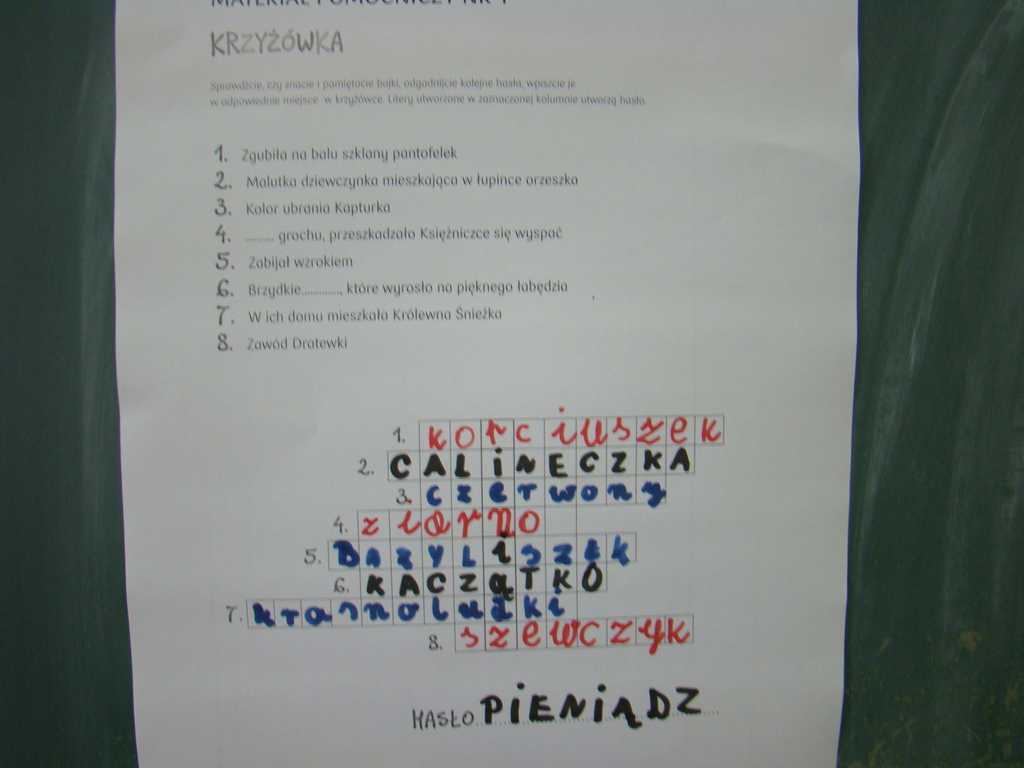 MATERIAŁ POMOCNICZY NR 1
KRZYŻÓWKA
Sprawdźcie, czy znacie i pamiętacie bajki, odgadnijcie kolejne hasła, wpiszcie je
w odpowiednie miejsce w krzyżówce. Litery utworzone w zaznaczonej kolumnie utworzą hasło.
1. Zgubiła na balu szklany pantofelek
2. Malutka dziewczynka mieszkająca w łupince orzeszka
3. Kolor ubrania Kapturka
4. ......... grochu, przeszkadzało Księżniczce się wyspać
5. Zabijał wzrokiem
6. Brzydkie............., które wyrosło na pięknego łabędzia
7. W ich domu mieszkała Królewna Śnieżka
8. Zawód Dratewki
1. kopciuszek
2. CALiNECZKA
3. czerwony
4. ziarno
5. BAZYLiszek
6. KACZąTKO
7. krasnoludki
8. szewczyk
HASŁO PiENiĄDZ